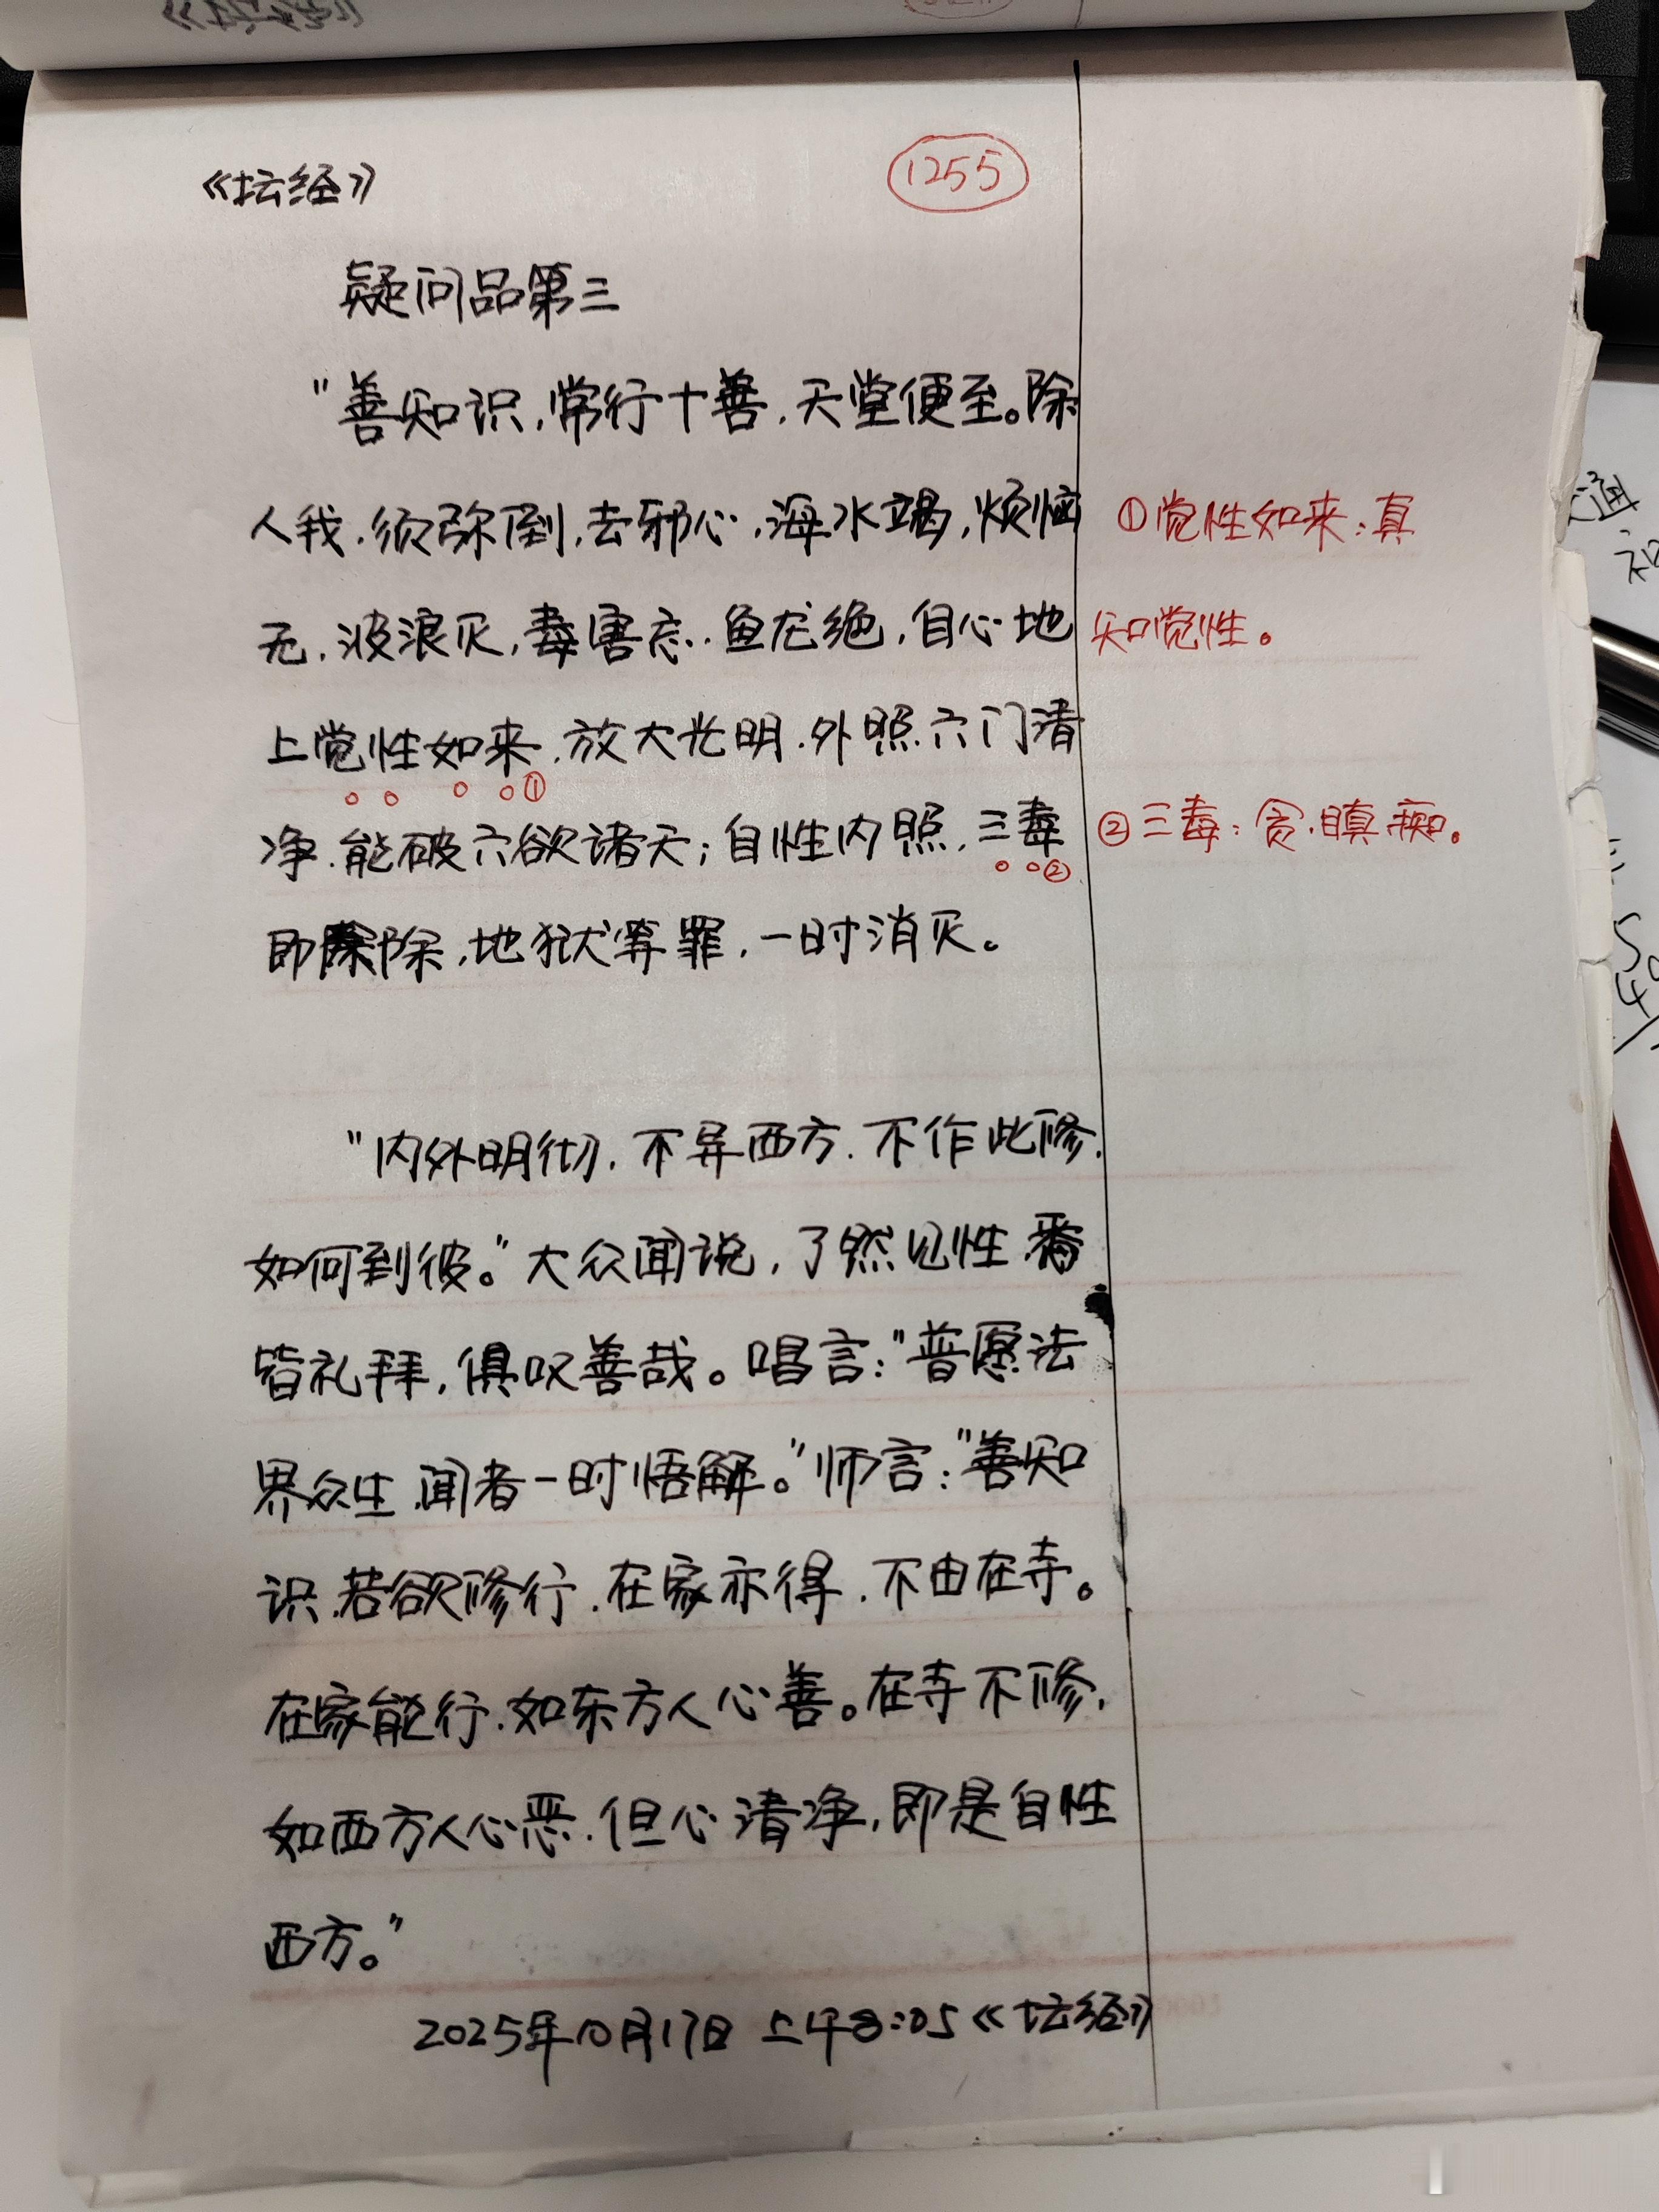 《坛经》
1255
疑问品第三
"善知识,常行十善,天堂便至。除
人我,须弥倒,去邪心,海水竭,烦恼
无,波浪灭,毒害忘,鱼龙绝,自心地
上觉性如来①,放大光明,外照六门清
净,能破六欲诸天;自性内照,三毒②
即除,地狱等罪,一时消灭。
①觉性如来:真
知觉性。
②三毒:贪、瞋、痴。
"内外明彻,不异西方,不作此修,
如何到彼。"大众闻说,了然见性,
皆礼拜,俱叹善哉。唱言:"普愿法
界众生,闻者一时悟解。"师言:"善知
识,若欲修行,在家亦得,不由在寺。
在家能行,如东方人心善。在寺不修,
如西方人心恶,但心清净,即是自性
西方。"
2025年10月17日 上午8:05《坛经》